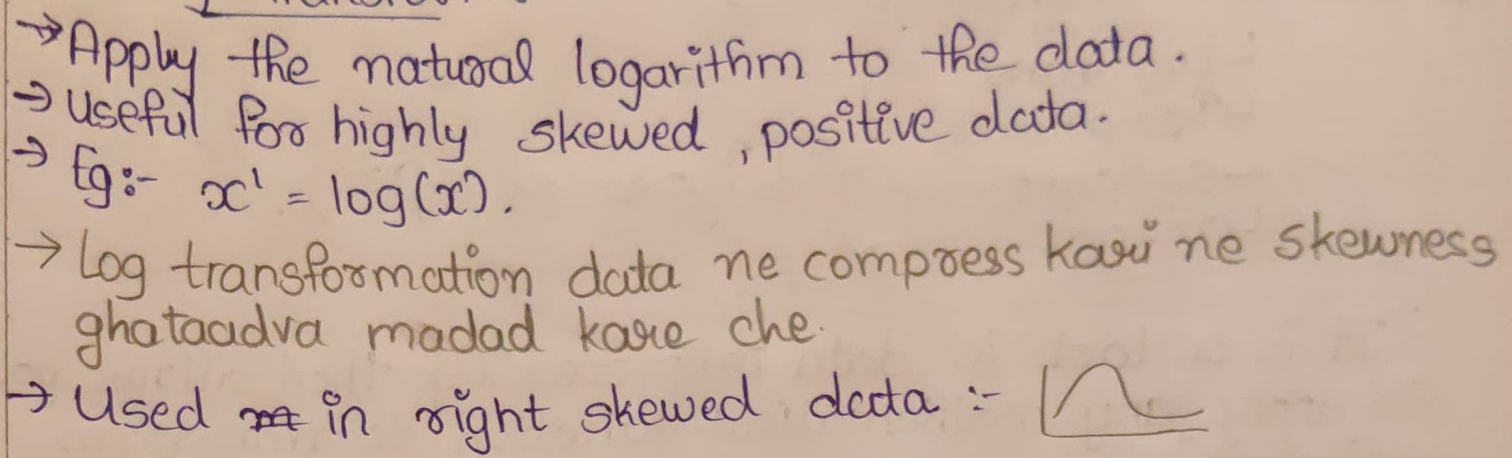 → Apply the natural logarithm to the data.
→ Useful for highly skewed, positive data.
→ Eg:- x' = log(x).
→ Log transformation data ne compress kari ne skewness
ghataadva madad kare che.
→ Used in right skewed data :-